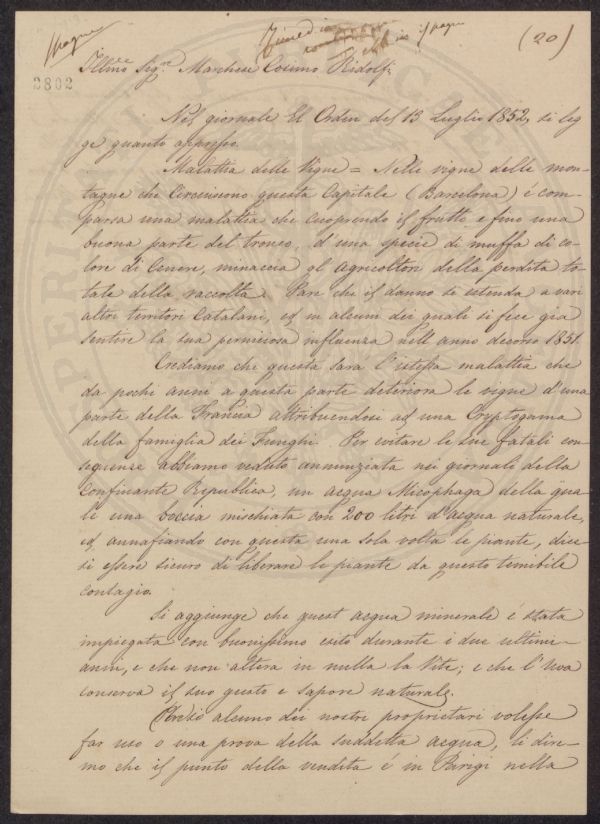 Spagna
(20)
2802
Illmo Sigre Marchese Cosimo Ridolfi
Nel giornale El Orden del 13 Luglio 1852, si leg
ge quanto appresso.
Malattia delle Vigne = Nelle vigne delle mon-
tagne che Circuiscono questa Capitale (Barcelona) é com-
parsa una malattia che cuoprendo il frutto e fino una
buona parte del tronco, d'una specie di muffa di co-
lore di Cenere, minaccia gl'agricoltori della perdita to-
tale della raccolta. Pare che il danno si estenda a vari
altri territori Catalani, ed in alcuni dei quali si fece gia
sentire la sua perniciosa influenza nell'anno decorso 1851.
Crediamo che questa sara l'istessa malattia che
da pochi anni a questa parte deteriora le vigne d'una
parte della Francia attribuendosi ad una Cryptogama
della famiglia dei Funghi. Per evitare le sue fatali con-
seguenze abbiamo veduto annunziata nei giornali della
Confinante Republica, un acqua Micophaga della qua-
le una boccia mischiata con 200 litri d'acqua naturale,
ed annafiando con questa una sola volta le piante, dice-
si essere sicuro di liberare le piante da questo temibile
contagio.
Si aggiunge che quest acqua minerale é stata
impiegata con buonissimo esito durante i due ultimi
anni, e che non altera in nulla la Vite; e che l'Uva
conserva il suo gusto e sapore naturale.
Perció alcuno dei nostri proprietari volesse
far uso o una prova della suddetta acqua, li dire-
mo che il punto della vendita é in Parigi nella